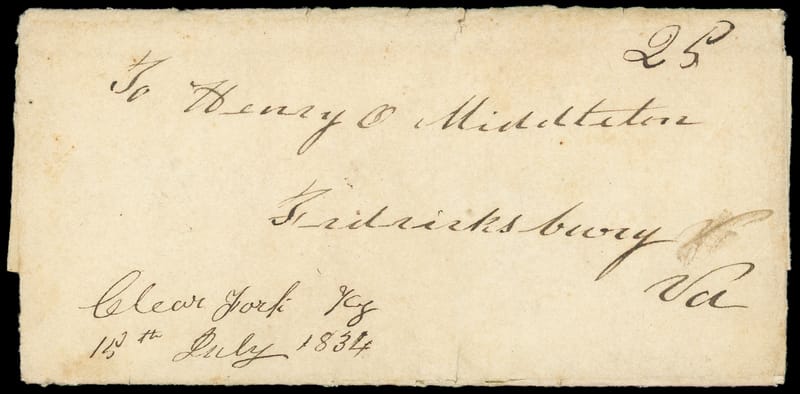 25
To Henry O Middleton
Fridricksburg
Va
Clear Fork Ky
15th July 1834